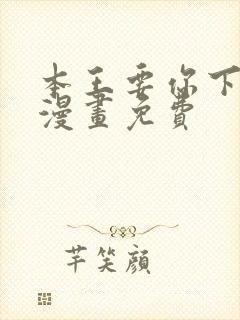 本王要你下
漫畫免費
芊笑顔